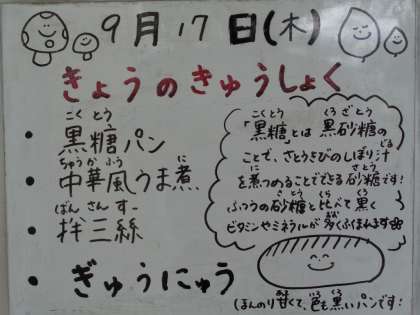 9月17日(木)
きょうのきゅうしょく
・黒糖パン
こくとう
・中華風うま煮
ちゅうかふう に
・拌三絲
ばんさんすー
・ぎゅうにゅう
こくとう くろざとう
「黒糖」とは黒砂糖の
じる
ことで、さとうきびのしぼり汁
に さとう
を煮つめることでできる砂糖です!
さとう くら くろ
ふつうの砂糖と比べて黒く
おお
ビタミンやミネラルが多くふくまれます
あま いろ くろ
ほんのり甘くて、色も黒いパンです!